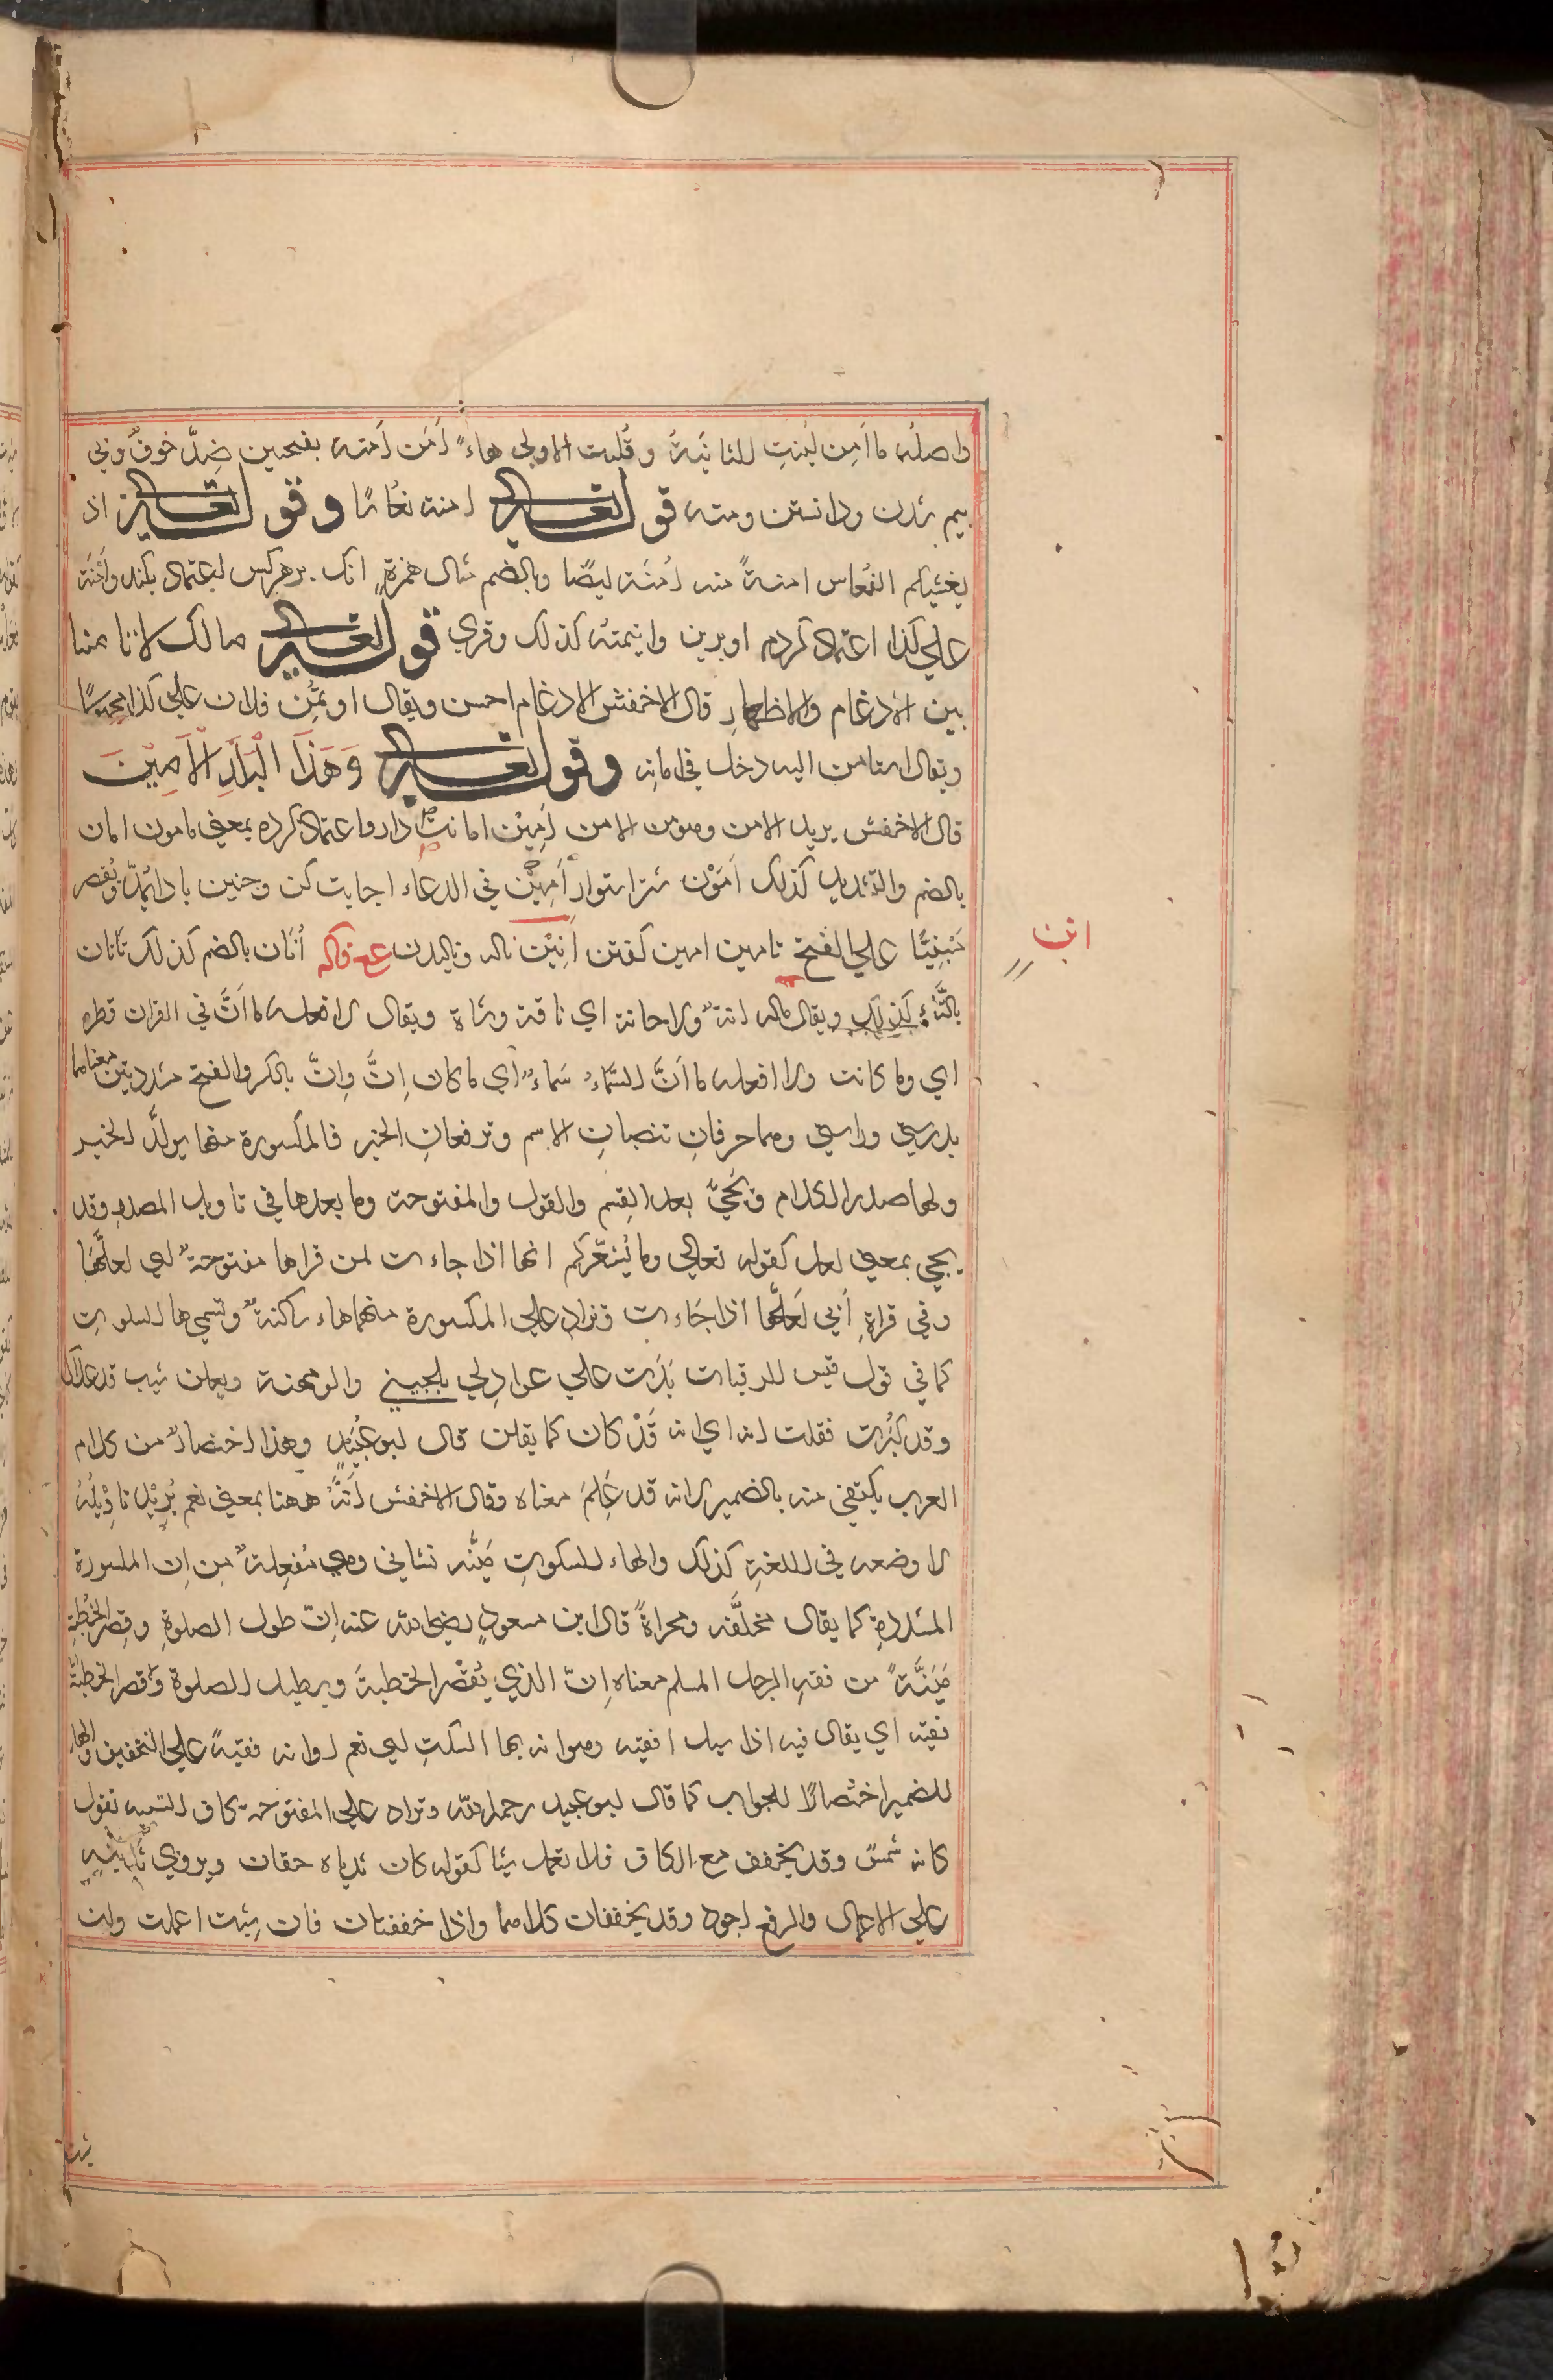 واصله ما امن لينت الثانية وقلبت الاولى هاء امن امنه بفتحين ضد خوف وبي
بيم شدن ودانستن ومنه قوله تعالى امنة نعاسا وقوله تعالى اذ
يغشيكم النعاس امنة منه امنة ايضا وبالضم مثال همزة انك بر هر كس اعتماد بكند وامنته
علي كذا اعتماد كردم او برين وائتمنته كذلك وقري قوله تعالى مالك لا تامنا
بين الادغام والاظهار قال الاخفش الادغام احسن ويقال اوتمن فلان علي كذا مجهولا
ويقال استامن اليه دخل في امانه وقوله تعالى وَهَذَا الْبَلَدِ الْاَمِيْنَ
قال الاخفش يريد الامن وهو من الامن اَمِيْن امانت دار واعتماد كرده بمعني مامون امان
بالضم والتشديد كذلك اَمَوْن شتر استوار اَمِيْن في الدعاء اجابت كن وچنين باد ايمد ويقصر
مَبْنِيًّا علي الفتح تامين امين كفتن اَنِيْن ناله وناليدن انان بالضم كذلك تانان
انن
بالتاء كذلك ويقال ماله انة ولا حانة اي ناقة وشاة ويقال لا افعله ما ان في الفرات قطرة
اي وما كانت ولا افعله ما ان السماء سماء اي ما كان ان وان بالكسر والفتح مشددتين معناهما
بدرستي وراستي وهما حرفان تنصبان الاسم وترفعان الخبر فالمكسورة منهما يوكد الخبر
ولها صدر الكلام وتجئ بعد القسم والقول والمفتوحة وما بعدها في تاويل المصدر وقد
يجي بمعني لعل كقوله تعالي وما يُشعركم انها اذا جاءت لمن قراها مفتوحة اي لعلها
وفي قراة اُبَي لعلها اذا جاءت وتزاد علي المكسورة منهما هاء ساكنة وتسمي ها السكوت
كما في قول قيس الرقيات بكرت علي عواذلي يلحينني والومهنة ويقلن شيب قد علاك
وقد كبرت فقلت انه اي انه قد كان كما يقلن قال ابو عبيد وهذا اختصار من كلام
العرب يكتفي منه بالضمير لانه قد عُلِمَ معناه وقال الاخفش انه ههنا بمعني نعم يُرِيْد تاوِيْلُهُ
لا وضعه في اللغة كذلك والهاء للسكوت مَئِنّه نشاني وهي مَفعِلة من ان المكسورة
المشددة كما يقال مخلقة ومحراة قال ابن مسعود رضي الله عنه ان طول الصلوة وقصر الخُطبة
مَئِنَّة من فقه الرجل المسلم معناه ان الذي يُقصر الخطبة ويطيل الصلوة وقصر الخطبة
فقيه اي يقال فيه اذا سيل افقيه هو انه بها السكت اي نعم او انه فقيه علي التخفيف والهاء
للضمير اختصارًا للجواب كما قال ابو عبيد رحمه الله وتزاد علي المفتوحة كاف التشبيه تقول
كانه شمس وقد يخفف مع الكاف فلا تعمل شيئا كقوله كان ثدياه حقان ويروي ثدييه
علي الاعمال والرفع اجود وقد يخففان كلاهما واذا خففتا فان شئت اعملت وان
شئت